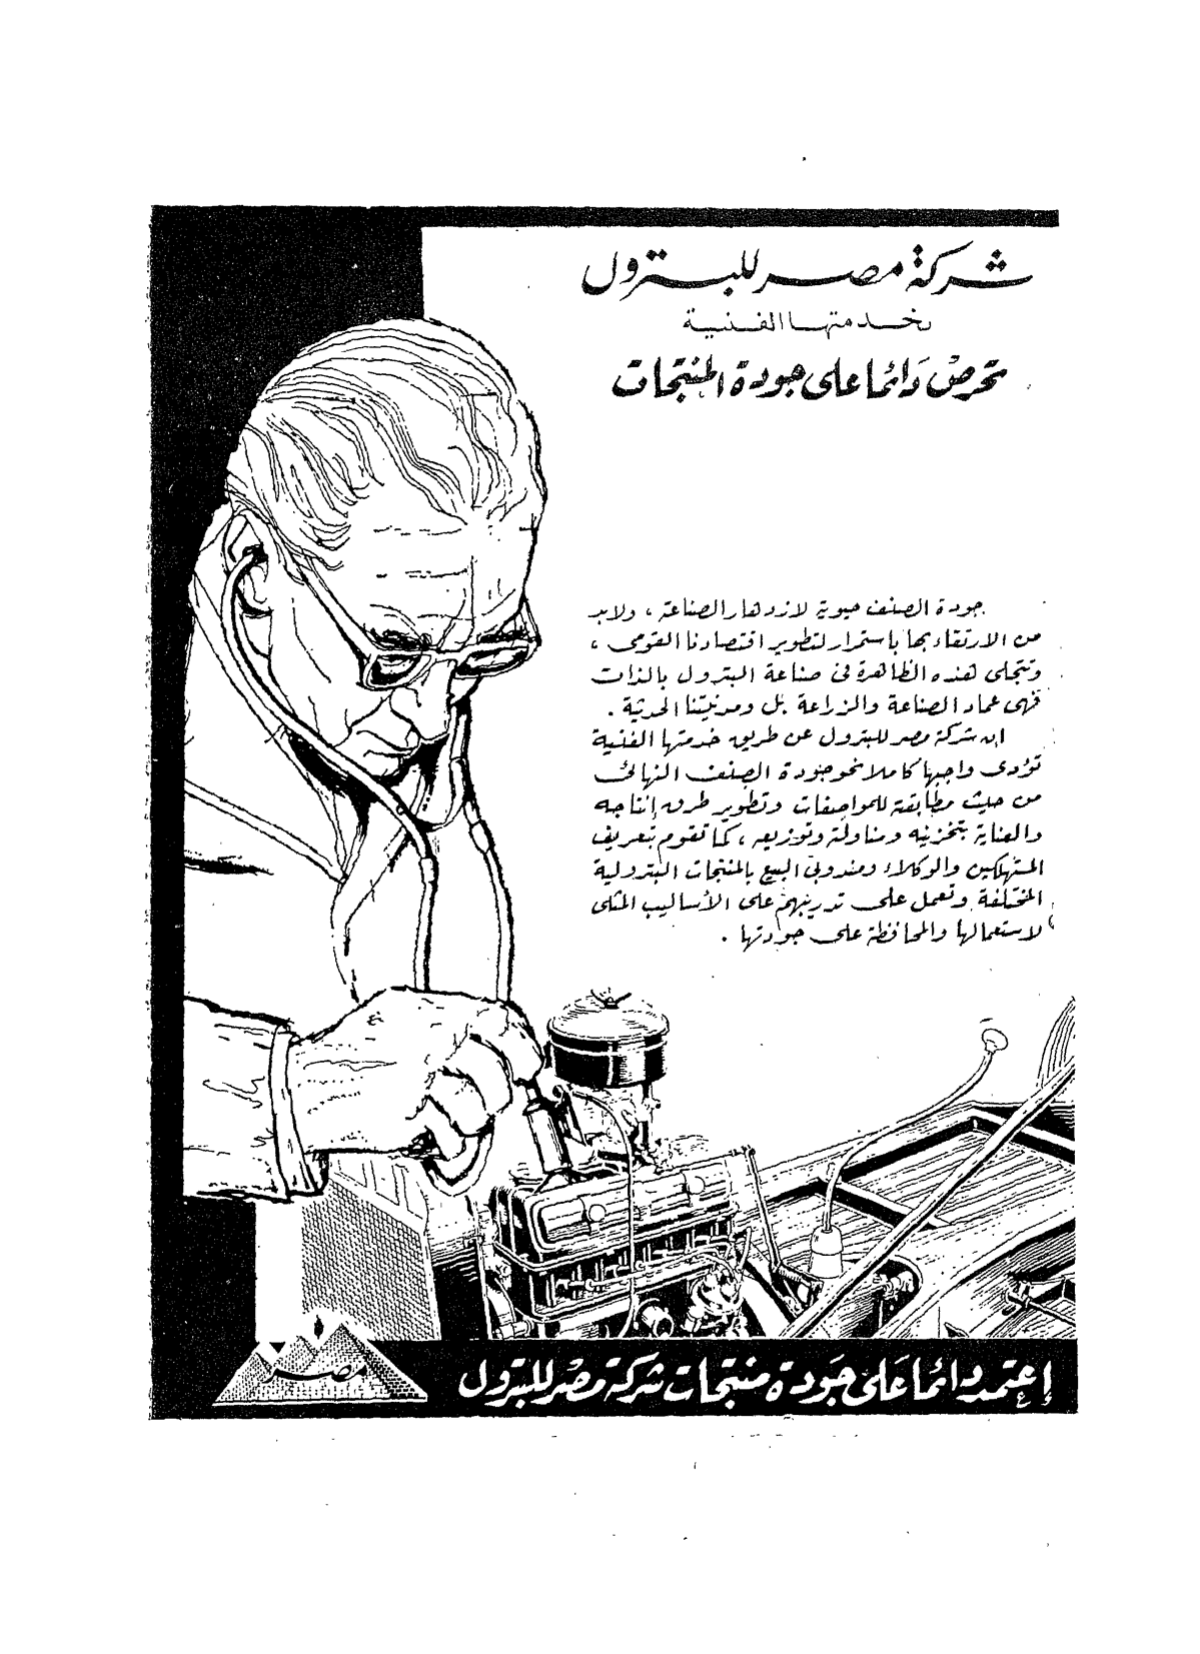 شركة مصر للبترول
بخدمتها الفنية
تحرص دائما على جودة المنتجات
جودة الصنف حيوية لازدهار الصناعة ، ولابد
من الارتقاء بها باستمرار لتطوير اقتصادنا القومى ،
وتتجلى هذه الظاهرة فى صناعة البترول بالذات
فهى عماد الصناعة والزراعة بل ومدنيتنا الحديثة .
إن شركة مصر للبترول عن طريق خدمتها الفنية
تؤدى واجبها كاملا نحو جودة الصنف النهائى
من حيث مطابقة للمواصفات وتطوير طرق إنتاجه
والعناية بتخزينه ومناولة وتوزيعه ، كما تقوم بتعريف
المستهلكين والوكلاء ومندوبى البيع بالمنتجات البترولية
المختلفة وتعمل على تدريبهم على الأساليب المثلى
لاستعمالها والمحافظة على جودتها .
مصر
إعتمد دائما على جودة منتجات شركة مصر للبترول